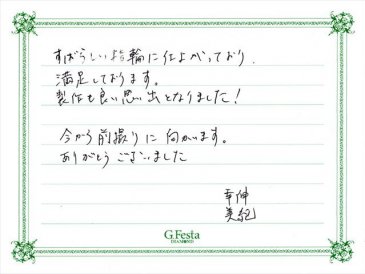 すばらしい指輪に仕上がっており、
満足しております。
製作も良い思い出となりました！
今から前撮りに向かいます。
ありがとうございました
幸伸
美紀
G.Festa
DIAMOND